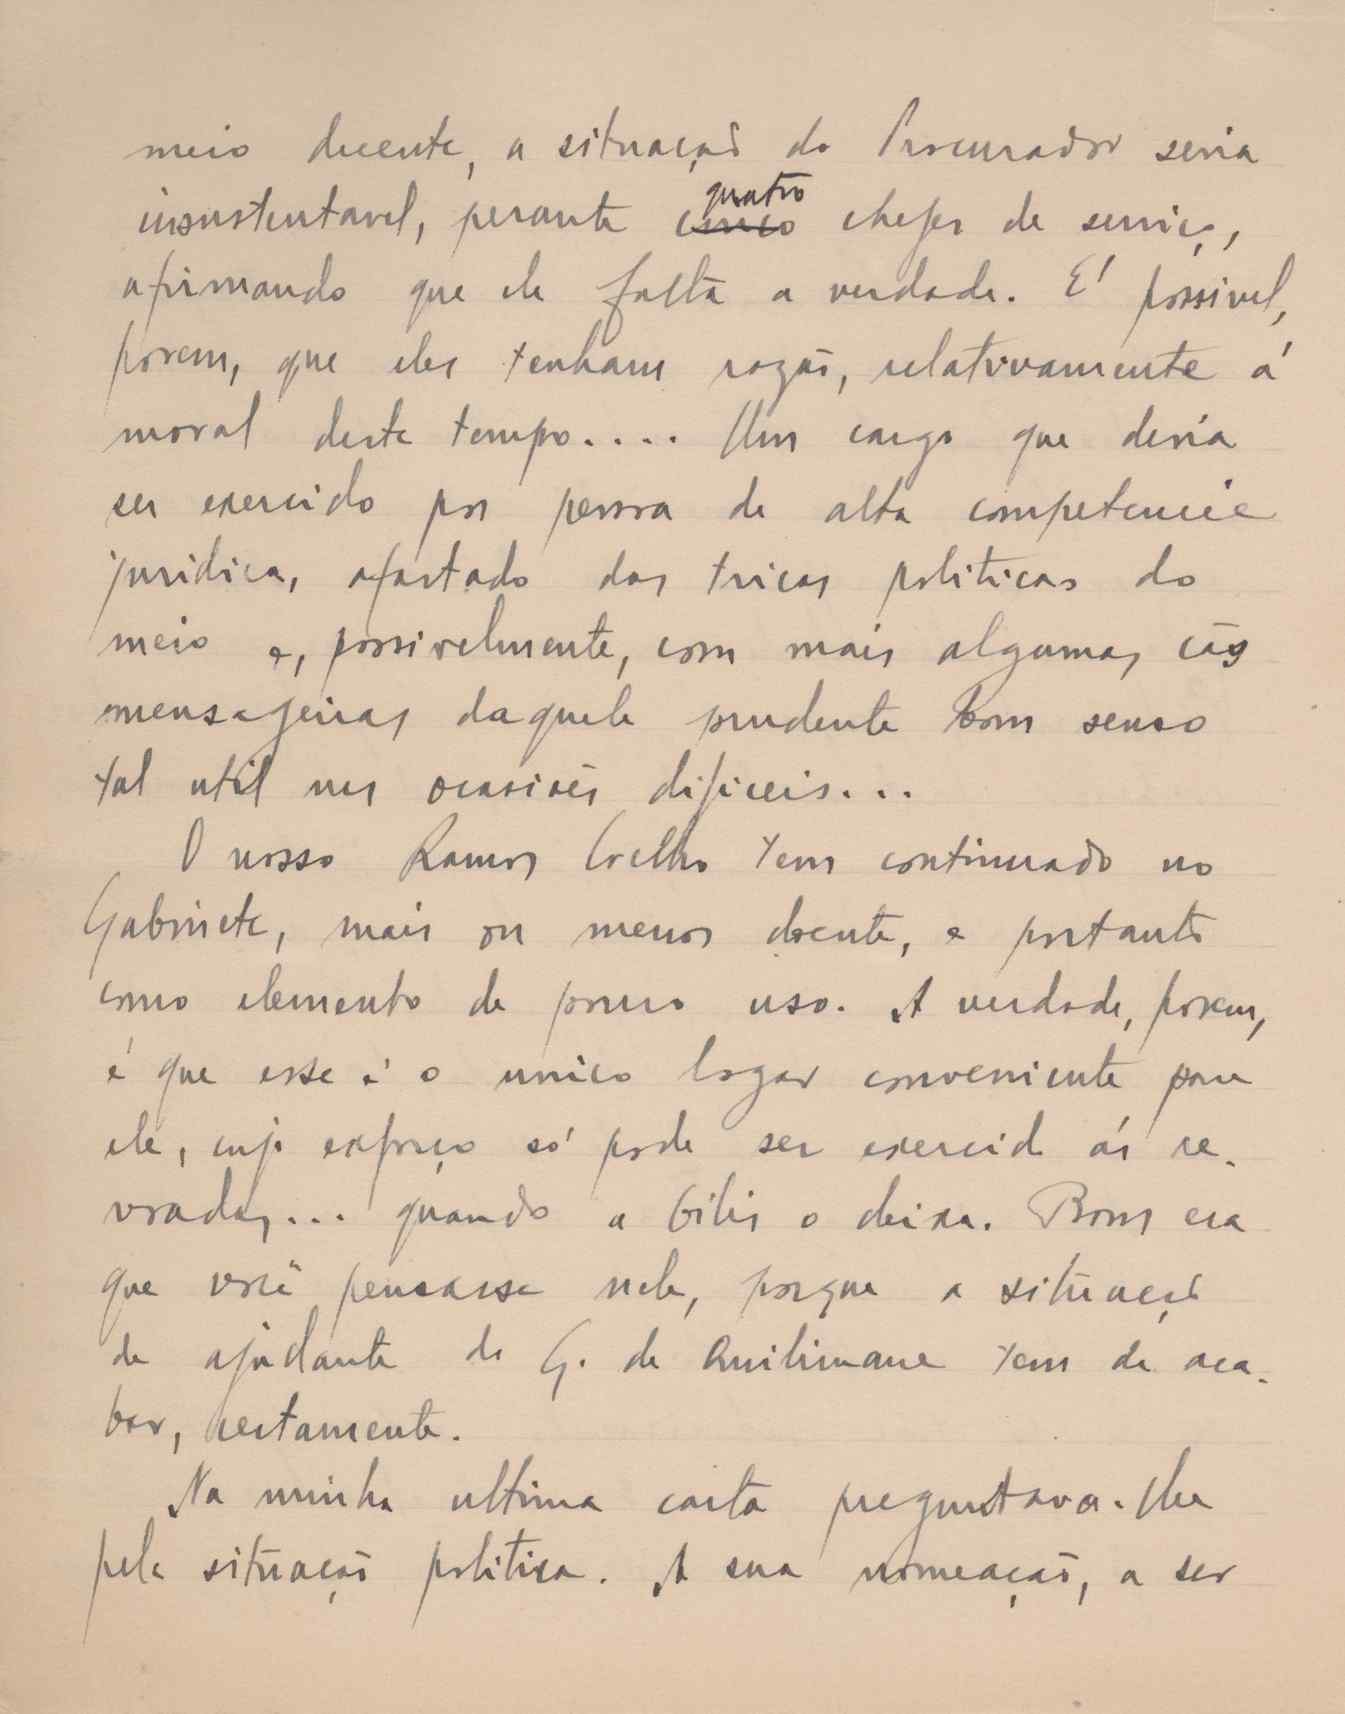 meio decente, a situação do Procurador seria
insustentavel, perante cinco quatro chefes de serviço,
afirmando que ele falta a verdade. É possivel,
porem, que eles tenham razão, relativamente á
moral deste tempo.... Um cargo que devia
ser exercido por pessoa de alta competencia
juridica, afastado das tricas politicas do
meio e, possivelmente, com mais algumas cãs
mensageiras daquele prudente bom senso
tal util nas ocasiões dificeis...
O nosso Ramos Coelho tem continuado no
Gabinete, mais ou menos doente, e portanto
como elemento de pouco uso. A verdade, porem,
é que esse é o unico logar conveniente para
ele, cujo exforço só pode ser exercido ás re-
voadas... quando a bilis o deixa. Bom era
que você pensasse nele, porque a situação
de ajudante do G. de Quilimane tem de aca-
bar, certamente.
Na minha ultima carta preguntava-lhe
pela situação politica. A sua nomeação, a ser